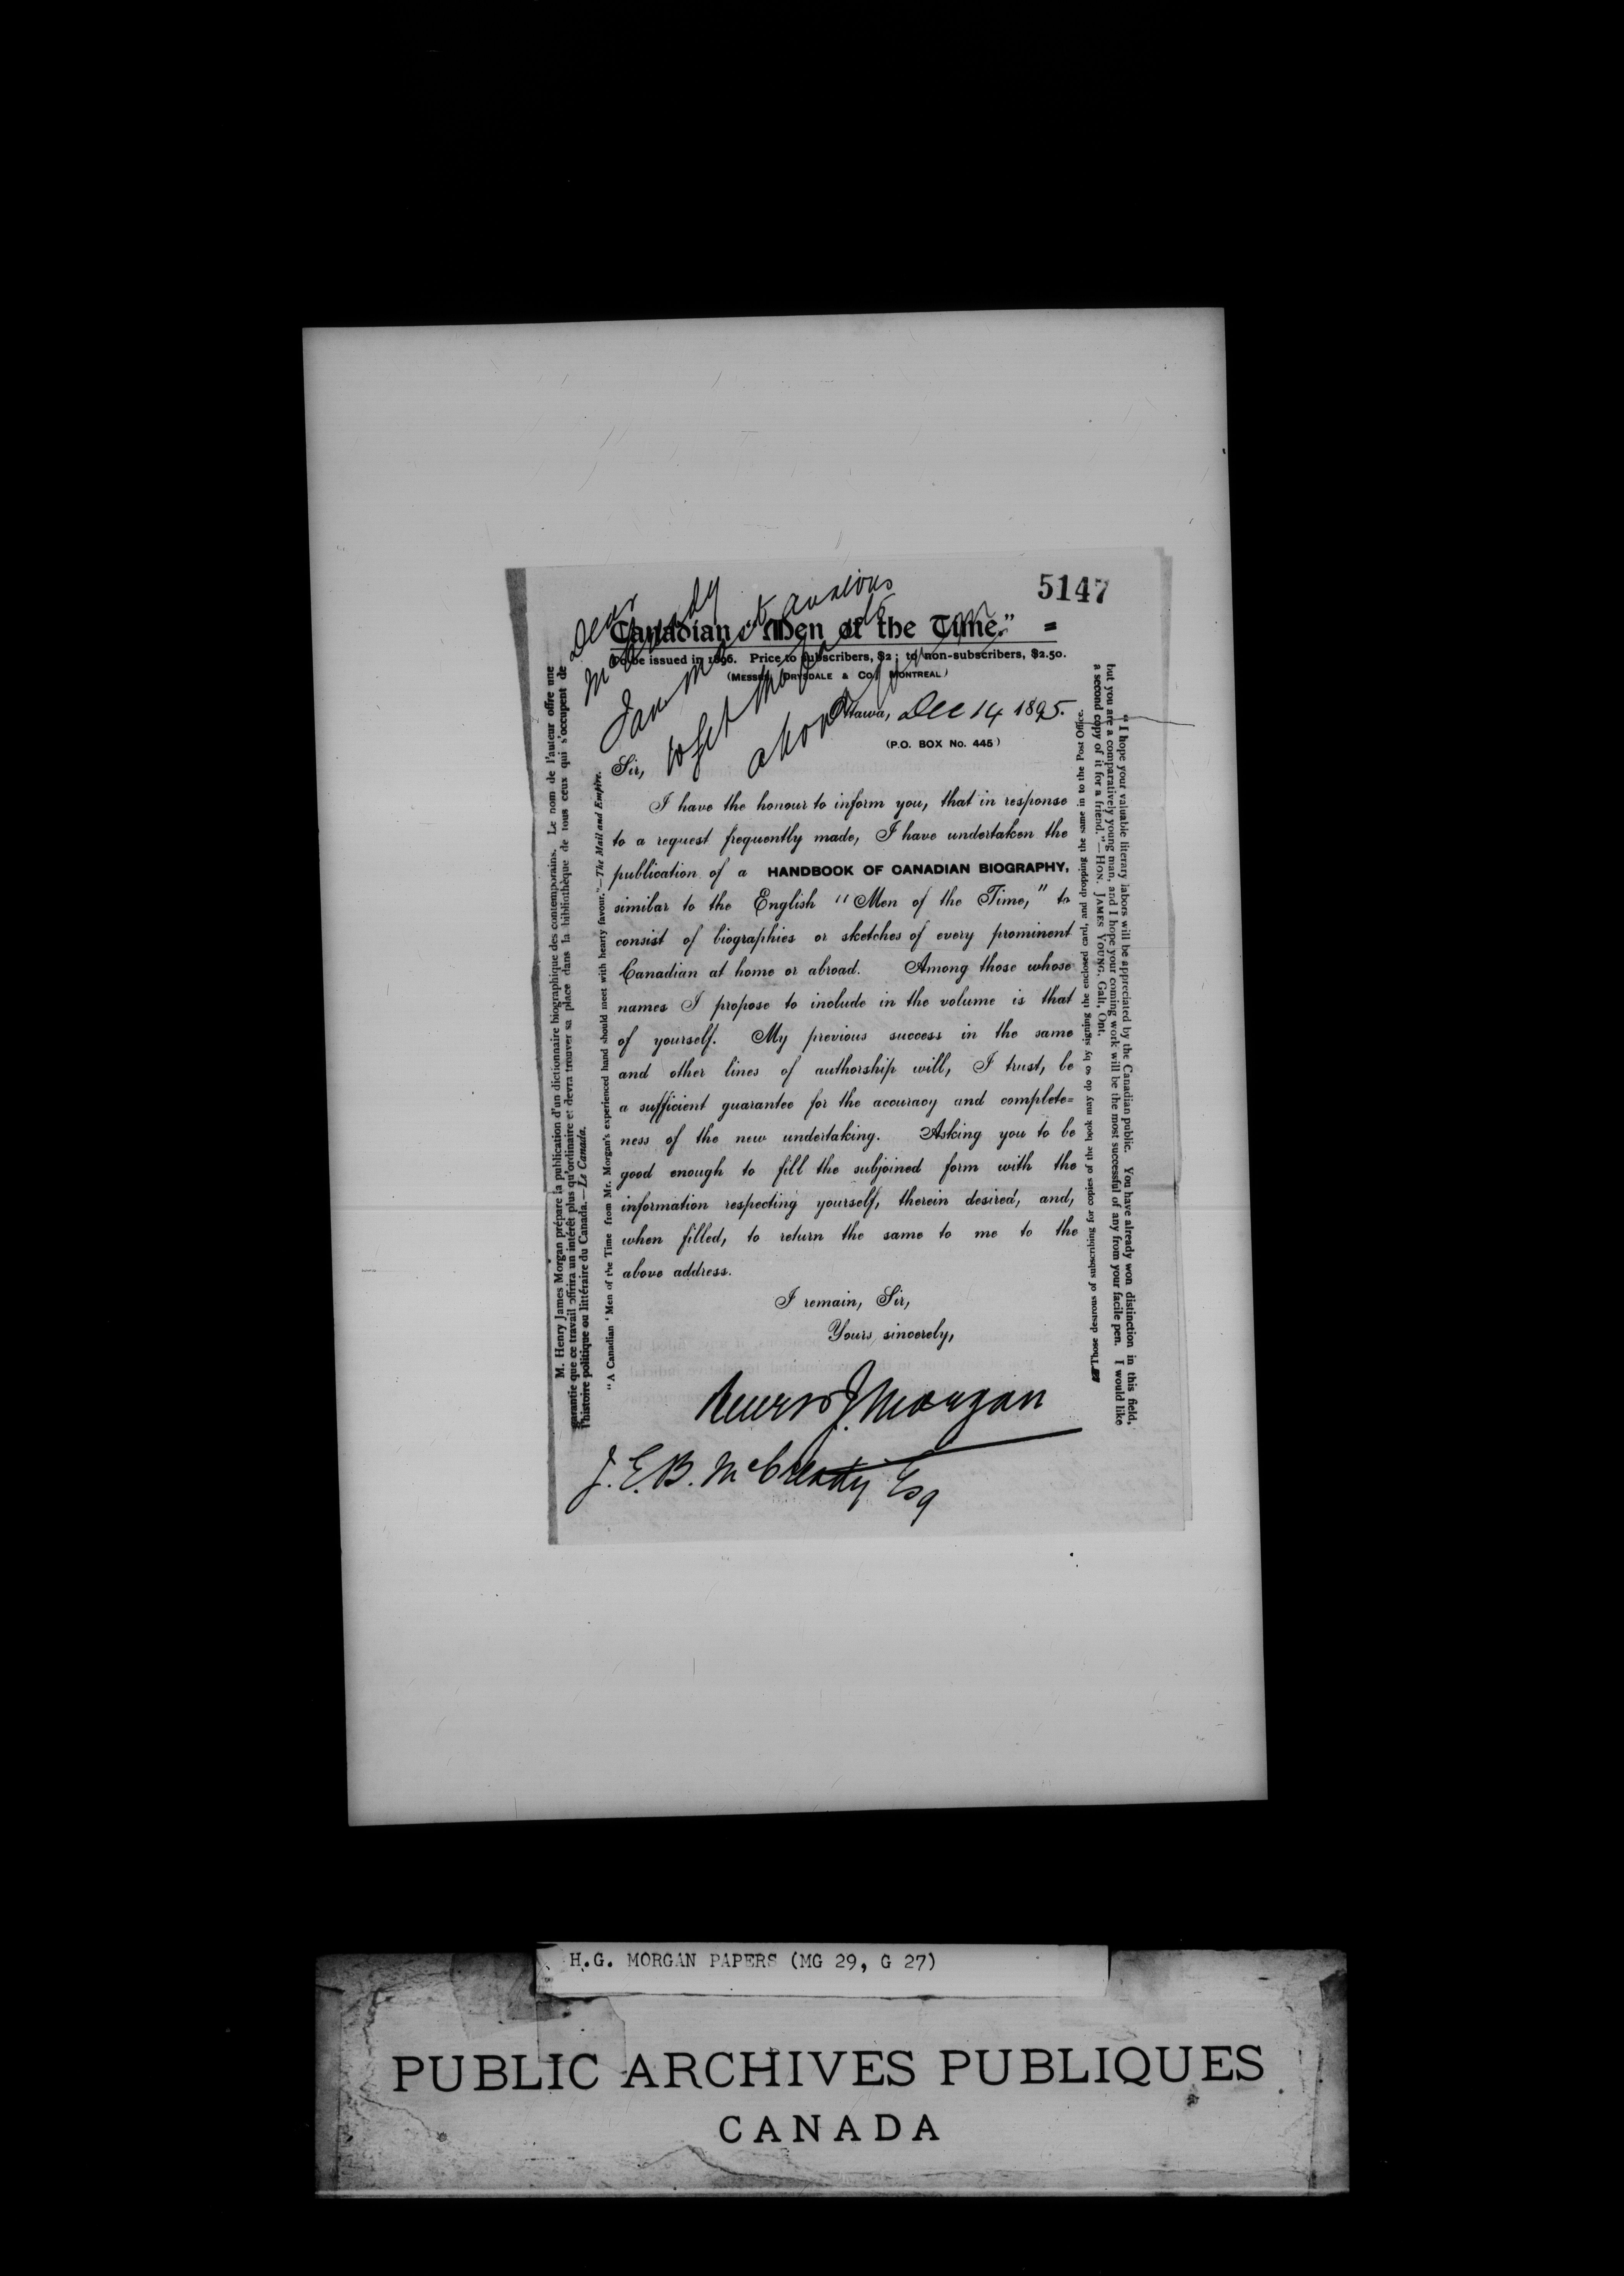 5147
Dear
McCready
I am most anxious
to get
about
Canadian "Men of the Time."
To be issued in 1896. Price to subscribers, $2; to non-subscribers, $2.50.
(MESSRS. DRYSDALE & CO. MONTREAL)
Ottawa, Dec 14 1895.
(P.O. BOX No. 445)
Sir,
I have the honour to inform you, that in response
to a request frequently made, I have undertaken the
publication of a HANDBOOK OF CANADIAN BIOGRAPHY,
similar to the English "Men of the Time," to
consist of biographies or sketches of every prominent
Canadian at home or abroad. Among those whose
names I propose to include in the volume is that
of yourself. My previous success in the same
and other lines of authorship will, I trust, be
a sufficient guarantee for the accuracy and complete=
ness of the new undertaking. Asking you to be
good enough to fill the subjoined form with the
information respecting yourself, therein desired, and,
when filled, to return the same to me to the
above address.
I remain, Sir,
Yours sincerely,
Henry J. Morgan
J. E. B. McCready Esq
M. Henry James Morgan prépare la publication d'un dictionnaire biographique des contemporains. Le nom de l'auteur offre une
garantie que ce travail offrira un intérêt plus qu'ordinaire et devra trouver sa place dans la bibliothèque de tous ceux qui s'occupent de
l'histoire politique ou littéraire du Canada.—Le Canada.
"A Canadian 'Men of the Time from Mr. Morgan's experienced hand should meet with hearty favour."—The Mail and Empire.
"I hope your valuable literary labors will be appreciated by the Canadian public. You have already won distinction in this field,
but you are a comparatively young man, and I hope your coming work will be the most successful of any from your facile pen. I would like
a second copy of it for a friend."—HON. JAMES YOUNG, Galt, Ont.
Those desirous of subscribing for copies of the book may do so by signing the enclosed card, and dropping the same in to the Post Office.
H.G. MORGAN PAPERS (MG 29, G 27)
PUBLIC ARCHIVES PUBLIQUES
CANADA